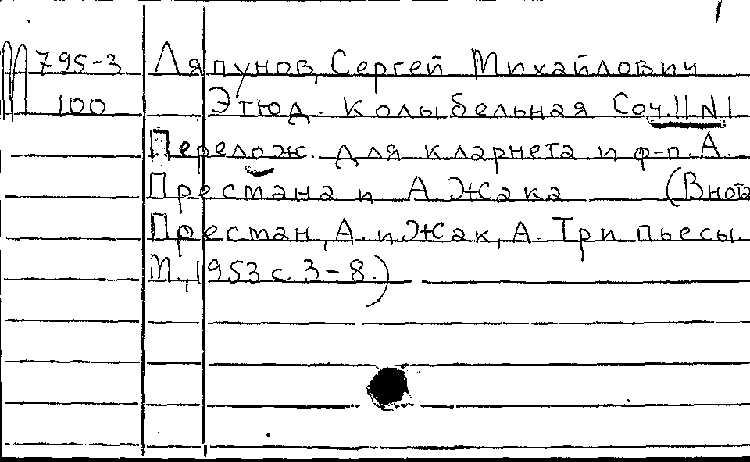 М 795-3 Ляпунов, Сергей Михайлович
100 Этюд. Колыбельная Соч. 11 N 1
Перелож. для кларнета и ф-п. А.
Престмана и А Жака (В нота
Престман, А. и Жак, А. Три пьесы.
М., 1953 с. 3-8.)